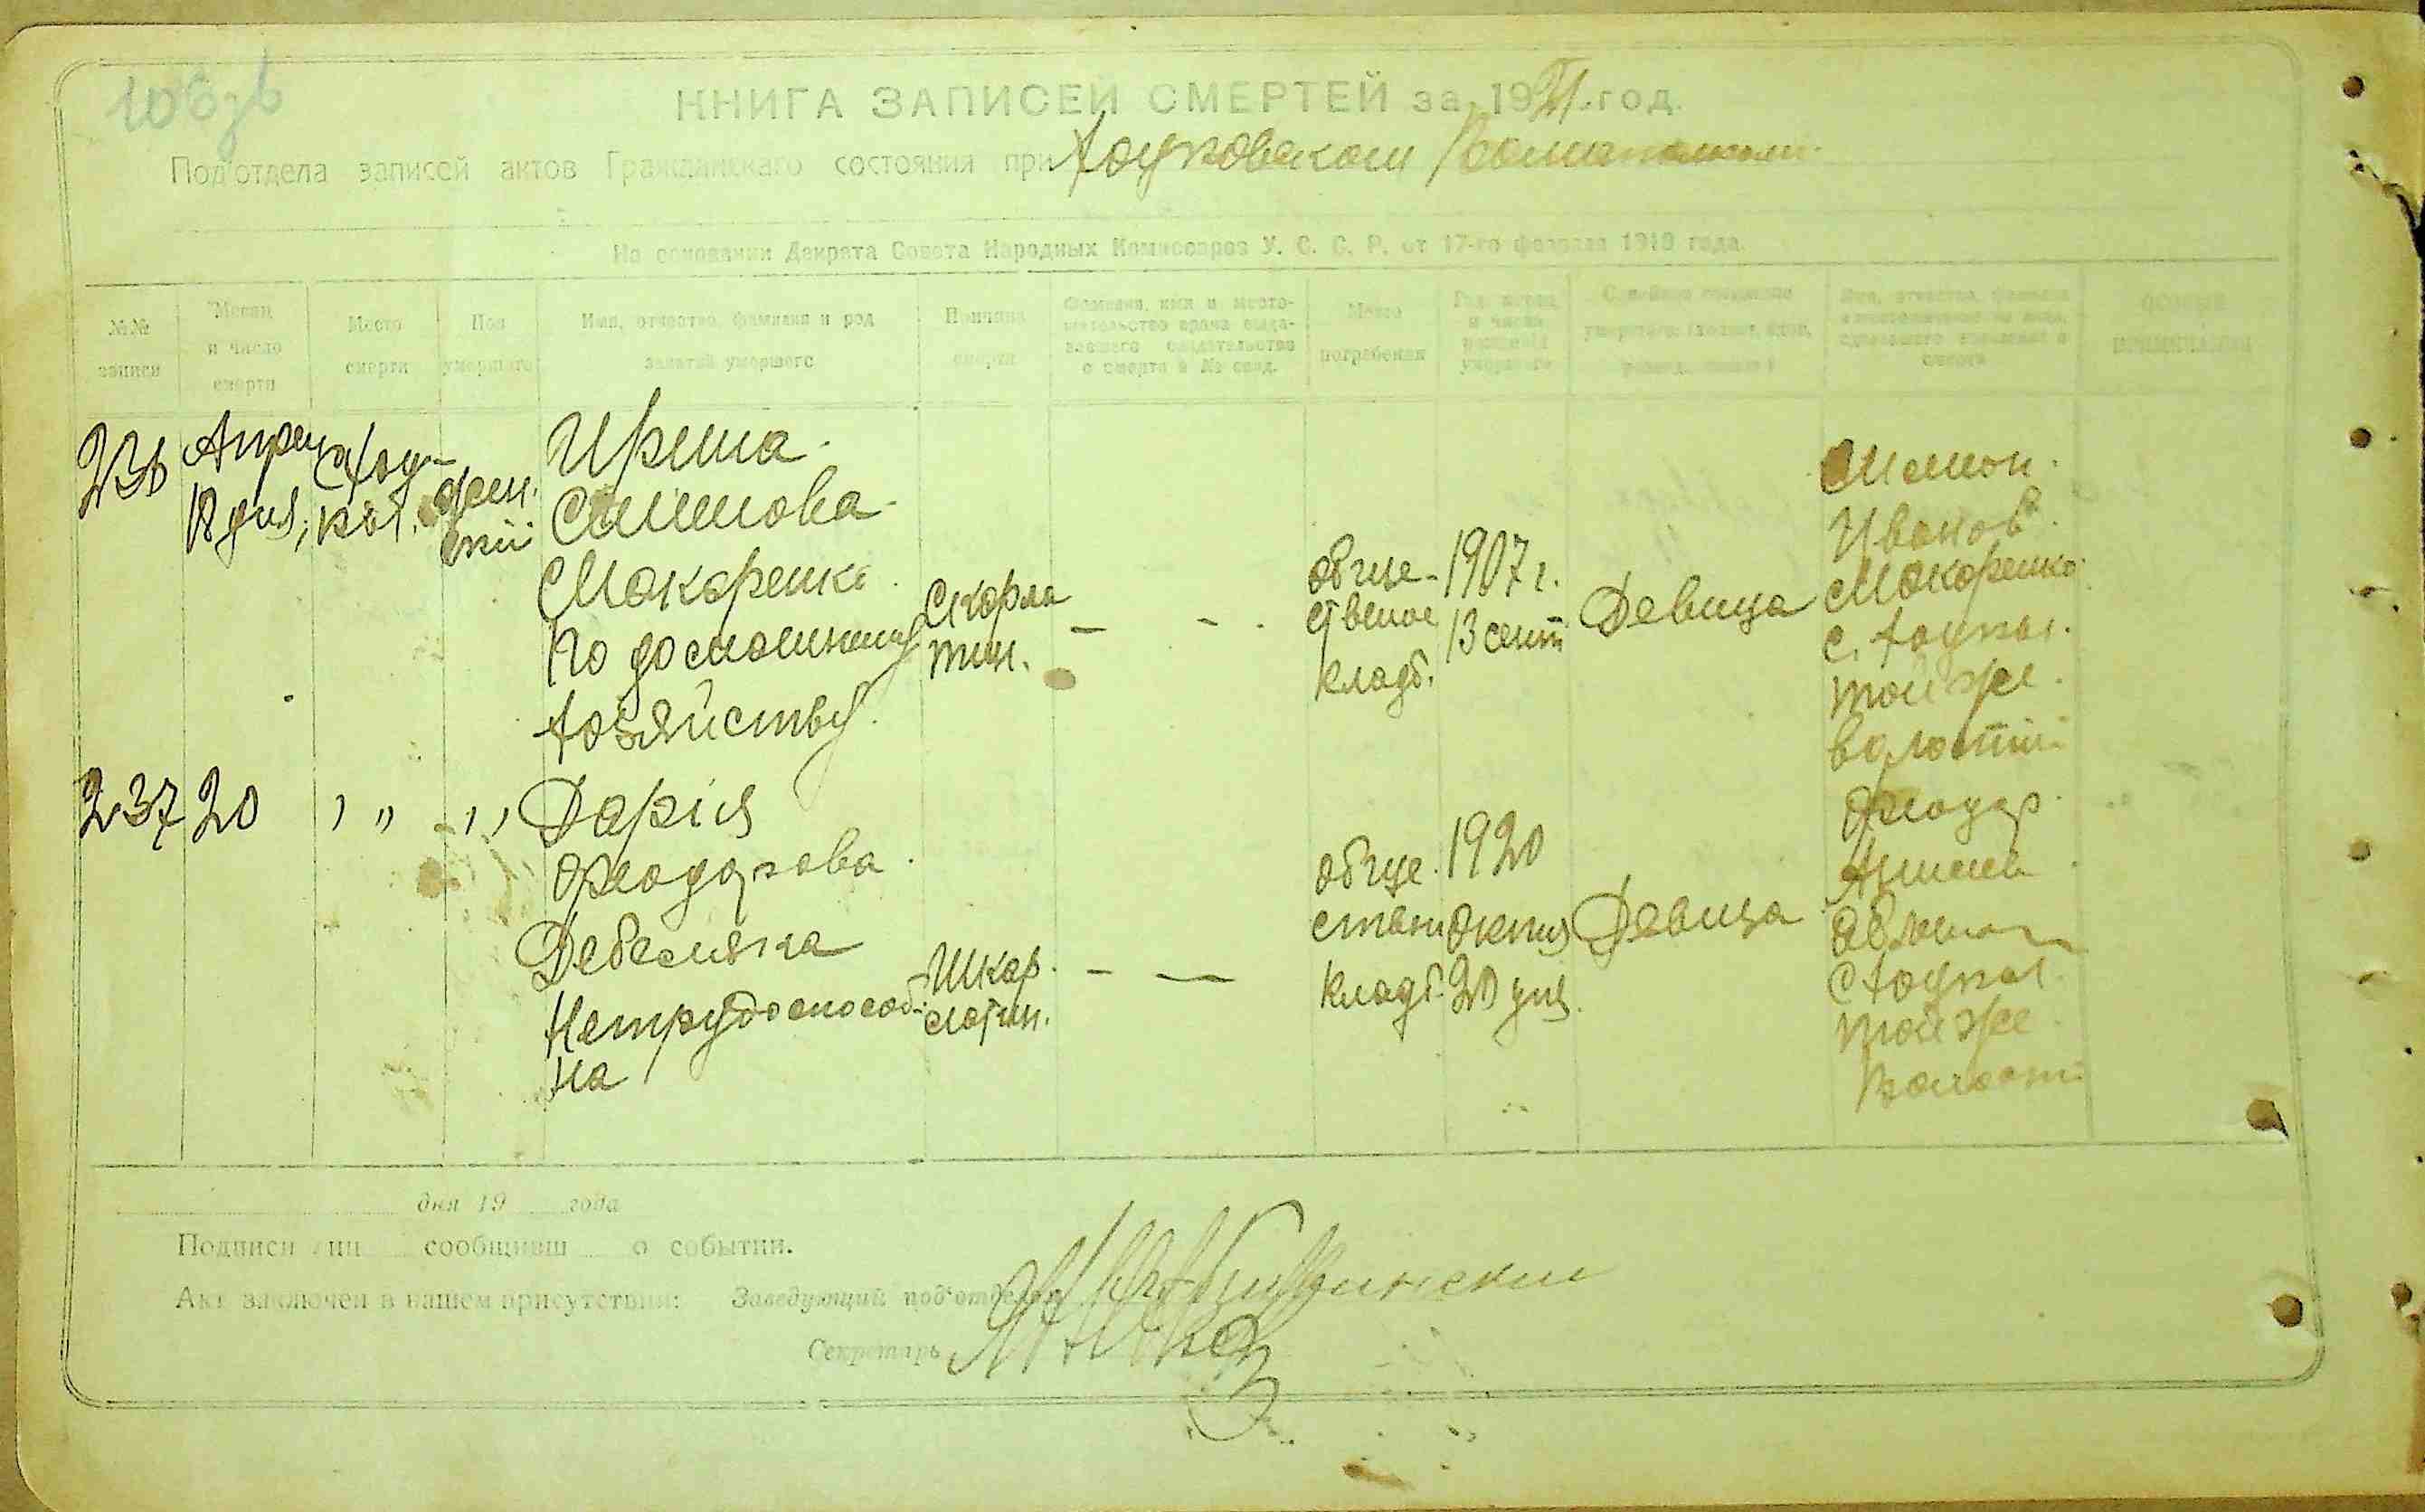 106зв
КНИГА ЗАПИСЕЙ СМЕРТЕЙ за 1921 год.
Под'отдела записей актов Гражданскаго состояния при Хоцковском
На основании Декрета Совета Народных Комиссаров У. С. С. Р. от 17-го февраля 1919 года.
№№ записи
Месяц и число смерти
Место смерти
Пол умершаго
Имя, отчество, фамилия и род занятий умершего
Причина смерти
Фамилия, имя и место-
жительство врача выда-
вшего свидетельство
о смерти и № свид.
Место погребения
Год, месяц
и число
рождения
умершего
Семейное положение
умершего
Имя, отчество, фамилия
особые примечания
236
Апреля
18 дня,
с. Хоц-
ки.
жен.
ский
Ирина
Симонова
Макаренко
По домашнему
хозяйству
Скарла
тин.
— -
обще-
ственое
кладб.
1907 г.
13 сент
Девица
Симон
Иванов
Макаренко
с. Хоцки.
той же
волости
237
20
" "
" "
Дарія
Феодорова
Дебелянка
Нетрудоспособ-
на
Шкар
латин.
— —
обще
ствен
кладб.
1920
Октяб
20 дня.
Девица
Феодор
с Хоцки.
той же
Волости
дня 19 года
Подписи лиц сообщивш о событии.
Акт заключен в нашем присутствии: Заведующий под'отделом
Секретарь